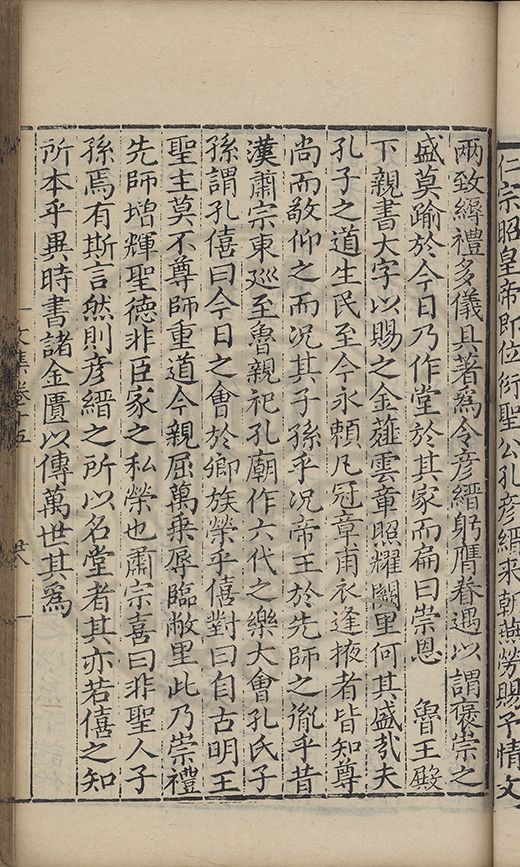 仁宗昭皇帝即位衍聖公孔彥縉来朝燕勞賜予情文
兩致縟禮多儀具著爲令彥縉躬膺眷遇以謂褒崇之
盛莫踰於今日乃作堂於其家而扁曰崇恩　魯王殿
下親書大字以賜之金薤雲章照耀闕里何其盛哉夫
孔子之道生民至今永賴凡冠章甫衣逢掖者皆知尊
尚而敬仰之而况其子孫乎况帝王於先師之胤乎昔
漢肅宗東廵至魯親祀孔廟作六代之樂大會孔氏子
孫謂孔僖曰今日之會於卿族榮乎僖對曰自古明王
聖主莫不尊師重道今親屈萬乗辱臨敝里此乃崇禮
先師增輝聖德非臣家之私榮也肅宗喜曰非聖人子
孫焉有斯言然則彥縉之所以名堂者其亦若僖之知
所本乎異時書諸金匱以傳萬世其爲
文集卷十五